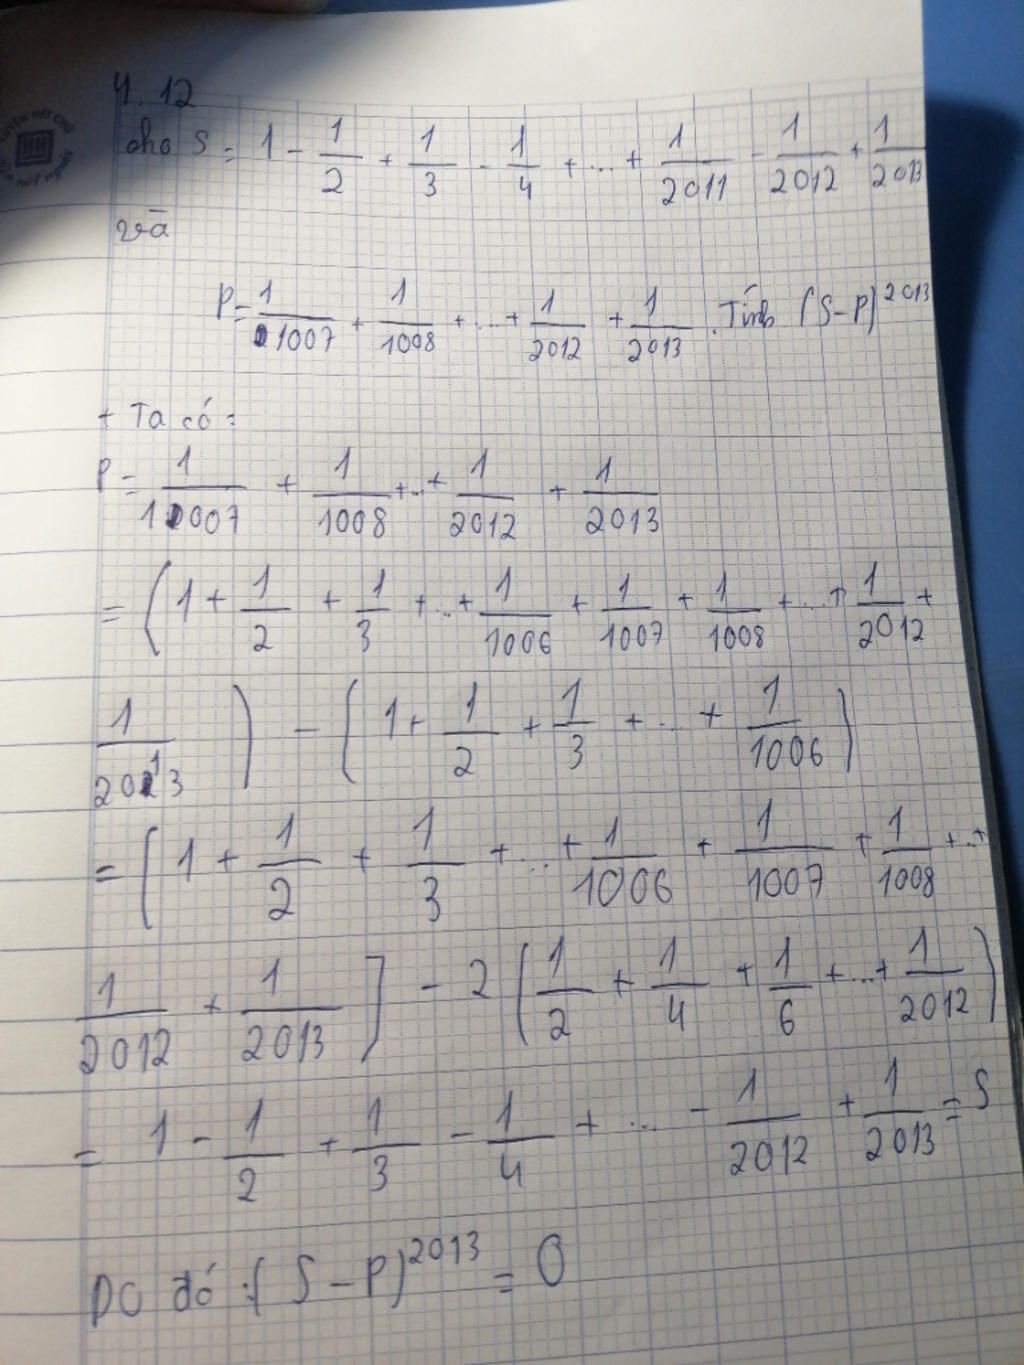 4.12
cho S = 1 - 1/2 + 1/3 - 1/4 + ... + 1/2011 - 1/2012 + 1/2013
và
P = 1/1007 + 1/1008 + ... + 1/2012 + 1/2013 . Tính (S-P)^2013
+ Ta có:
P = 1/1007 + 1/1008 + ... + 1/2012 + 1/2013
= (1 + 1/2 + 1/3 + ... + 1/1006 + 1/1007 + 1/1008 + ... + 1/2012 +
1/2013) - (1 + 1/2 + 1/3 + ... + 1/1006)
= [1 + 1/2 + 1/3 + ... + 1/1006 + 1/1007 + 1/1008 + ... +
1/2012 + 1/2013] - 2 (1/2 + 1/4 + 1/6 + ... + 1/2012)
= 1 - 1/2 + 1/3 - 1/4 + ... - 1/2012 + 1/2013 = S
DO đó : (S - P)^2013 = 0